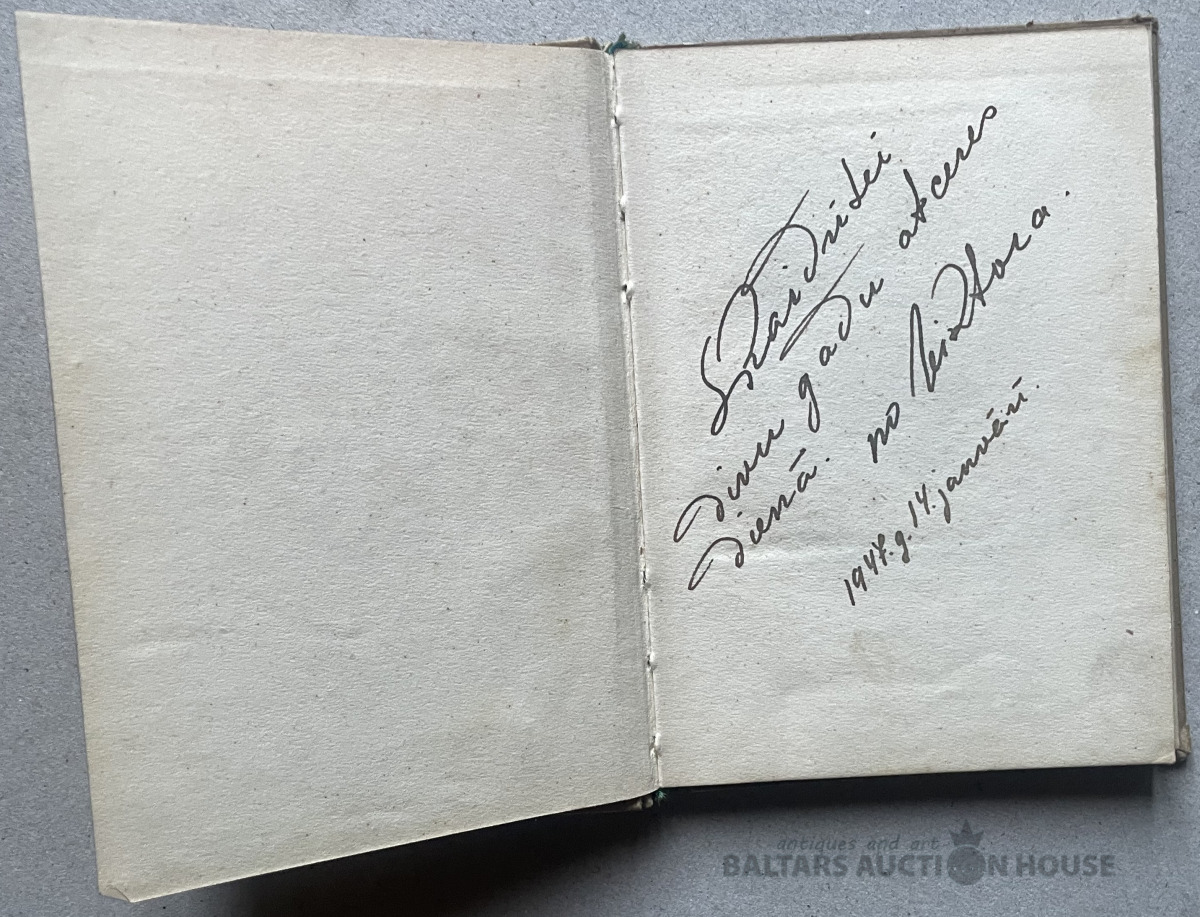 Skaidrītei
divu gadu atceres
dienā. no Viktora.
1947.g. 14. janvārī.
antiques and art
BALTARS AUCTION HOUSE